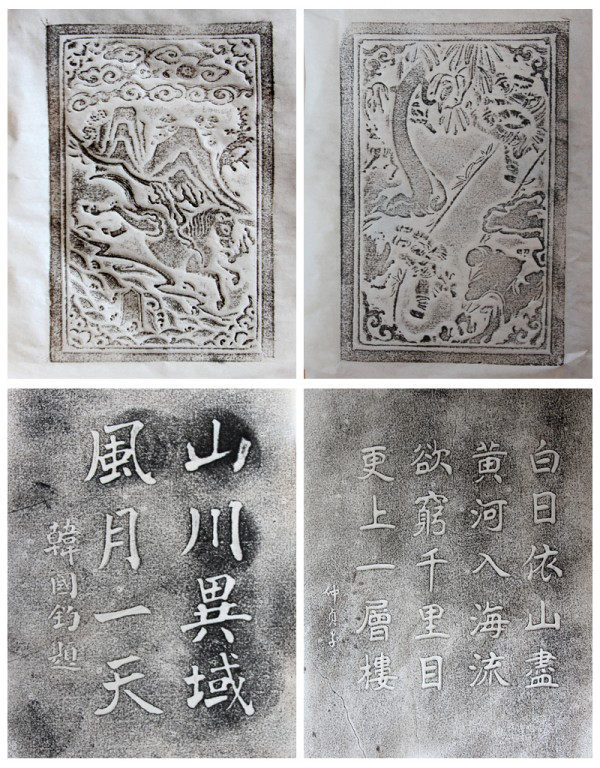 山川異域
風月一天
韓國鈞題
白日依山盡
黄河入海流
欲窮千里目
更上一層樓
仲貞子